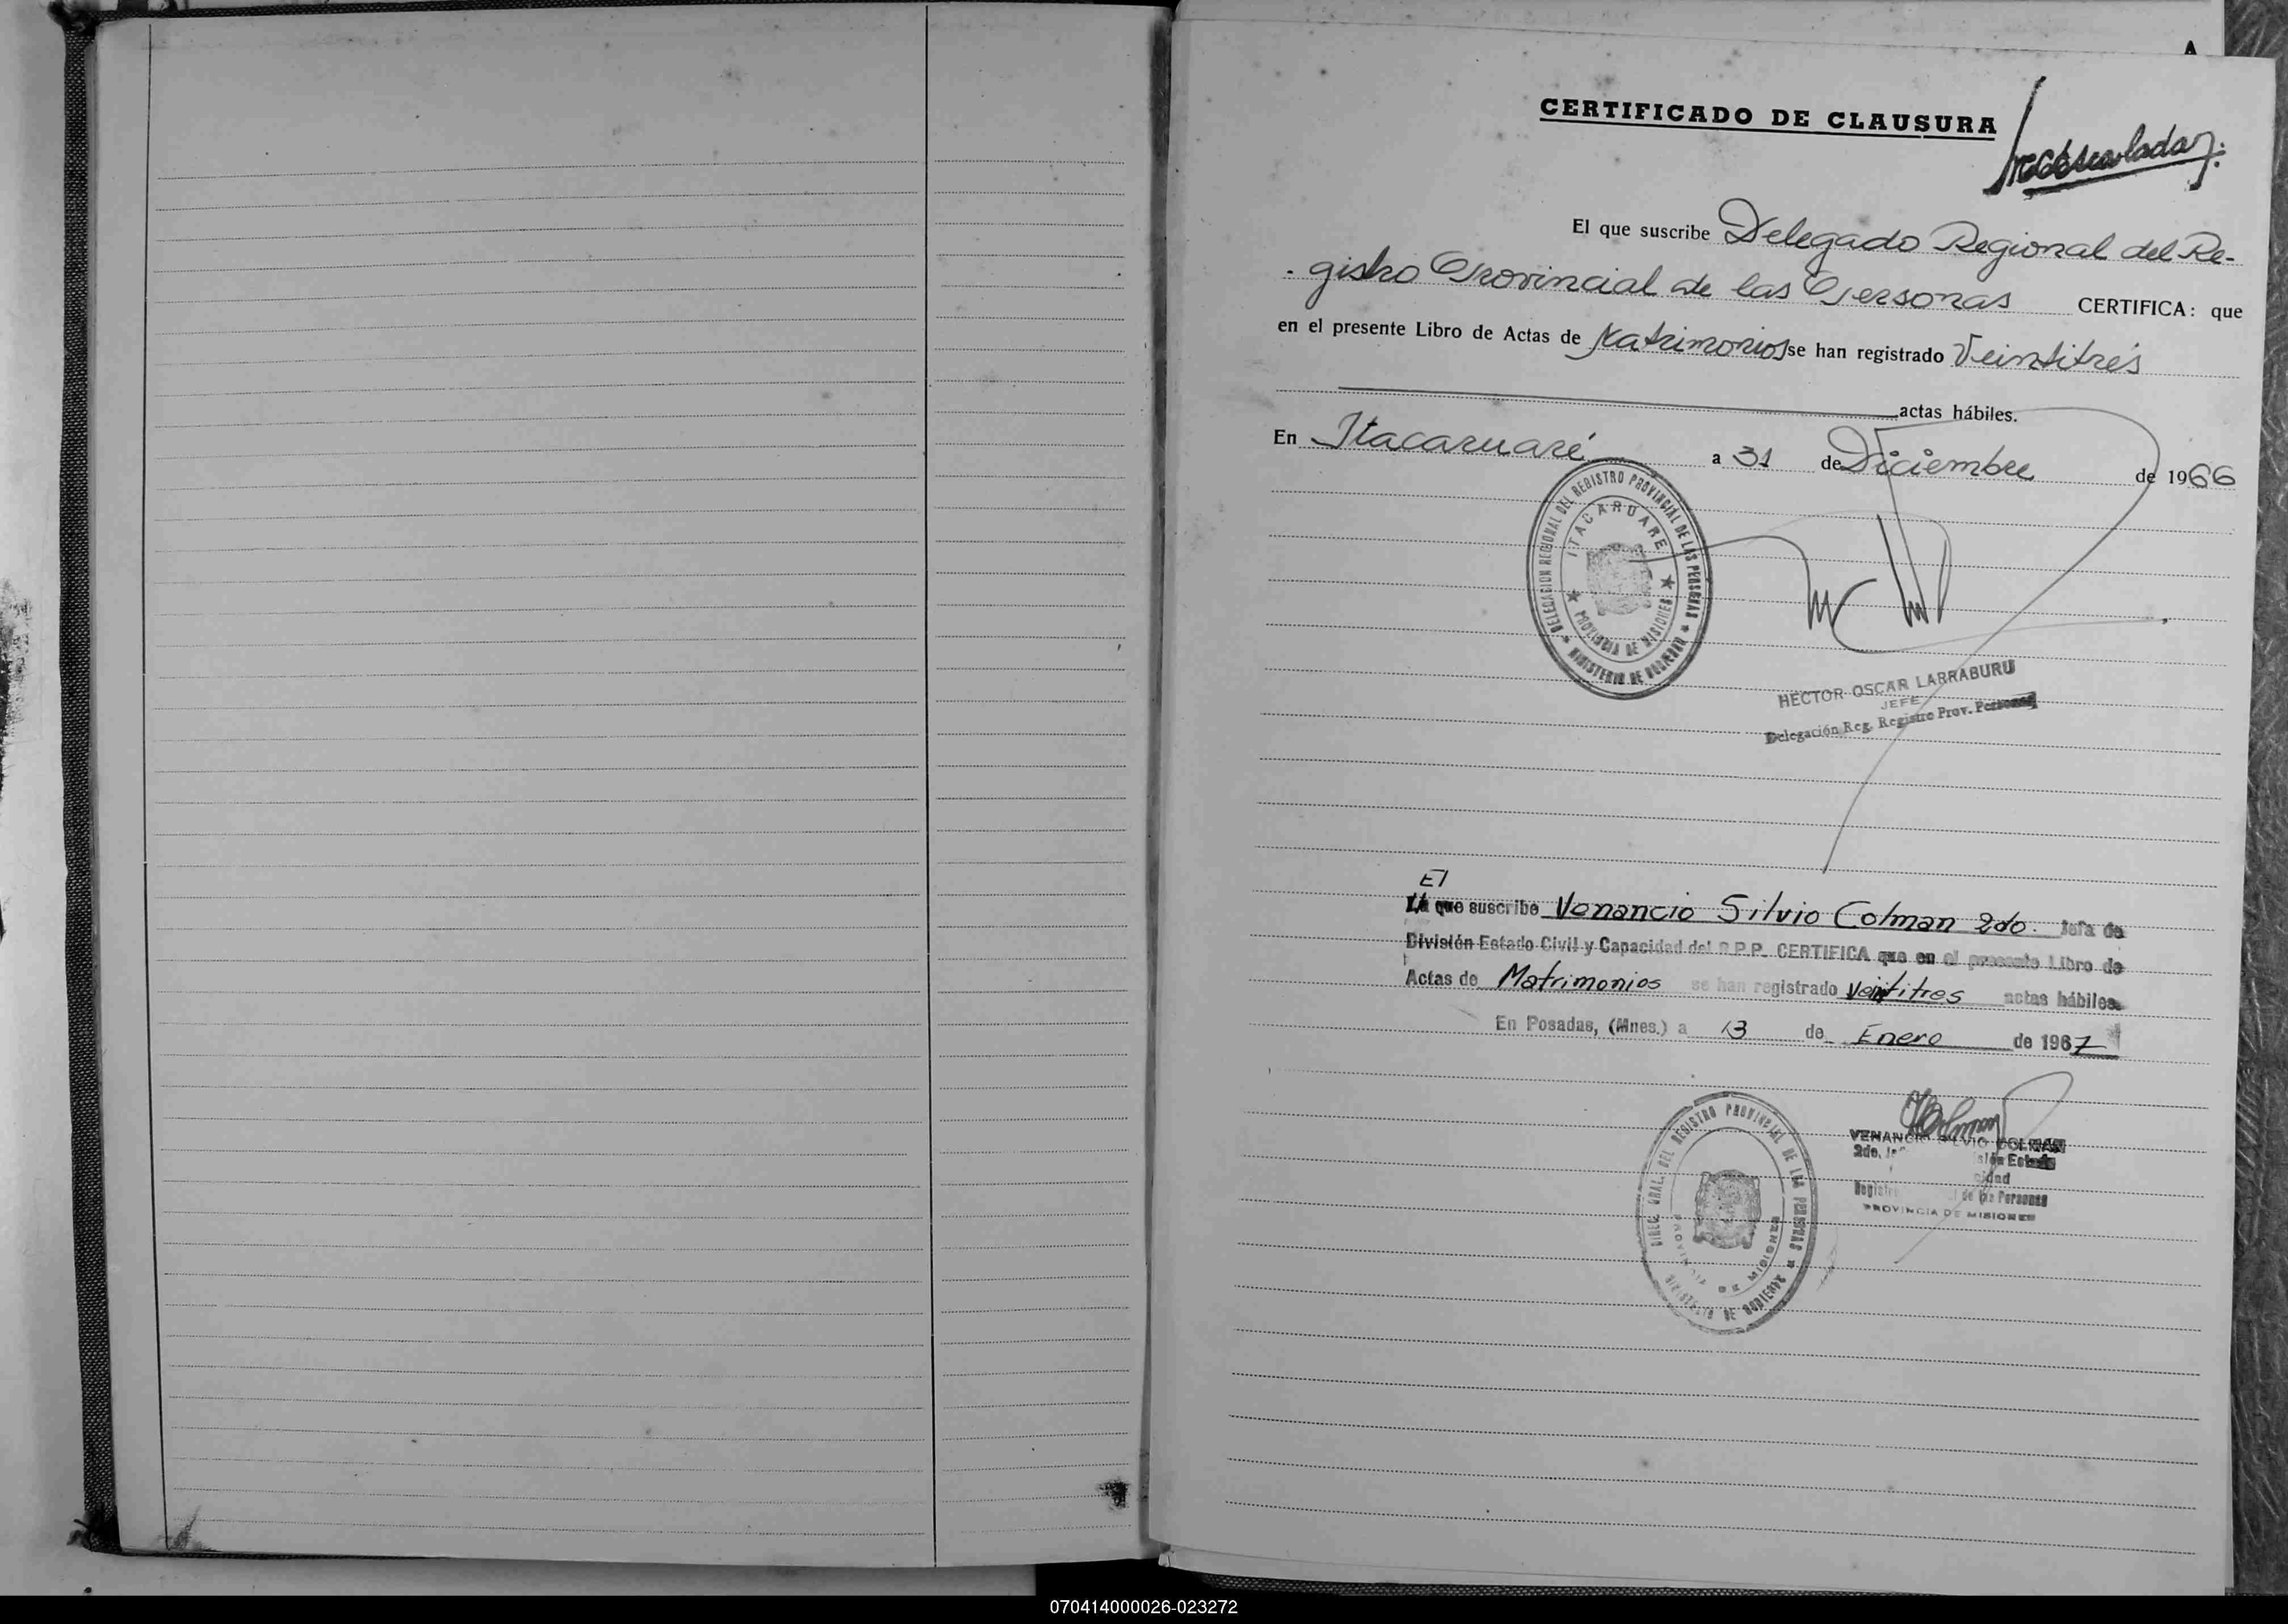 A
CERTIFICADO DE CLAUSURA
El que suscribe Delegado Regional del Re-
gistro Provincial de las Personas CERTIFICA: que
en el presente Libro de Actas de Matrimonios se han registrado Veintitrés
actas hábiles.
En Itacaruaré a 31 de Diciembre de 1966
DELEGACION REGIONAL DEL REGISTRO PROVINCIAL DE LAS PERSONAS ★ MINISTERIO DE GOBIERNO ★
ITACARUARE ★ PROVINCIA DE MISIONES ★
HECTOR OSCAR LARRABURU
JEFE
Delegación Reg. Registro Prov. Personas
El
La que suscribe Venancio Silvio Colman 2do. Jefa de
División Estado Civil y Capacidad del R.P.P. CERTIFICA que en el presente Libro de
Actas de Matrimonios se han registrado Veintitres actas hábiles.
En Posadas, (Mnes.) a 13 de Enero de 1967
DIREC. GRAL. DEL REGISTRO PROVINCIAL DE LAS PERSONAS ★ MINISTERIO DE GOBIERNO
PROVINCIA DE MISIONES
VENANCIO SILVIO COLMAN
2do.
de las Personas
PROVINCIA DE MISIONES
070414000026-023272